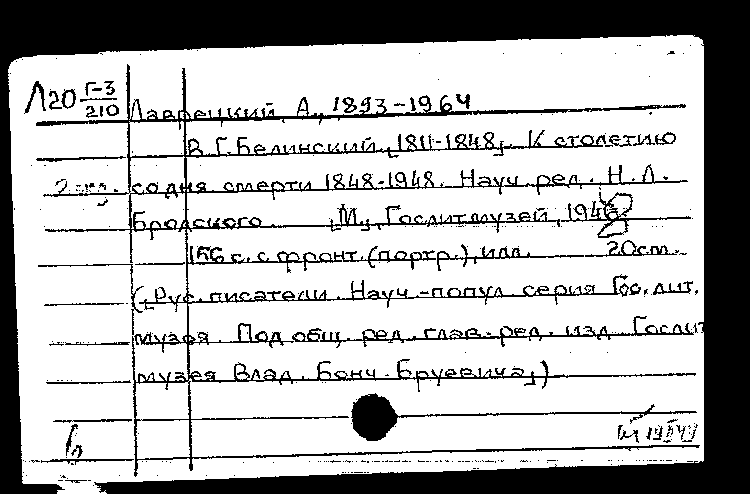 Л20 Г-3/210 Лаврецкий, А., 1893-1964
В.Г.Белинский, [1811-1848]. К столетию
2 экз. со дня смерти 1848-1948. Науч. ред. Н.Л.
Бродского. [М.], Гослитмузей, 1948
156 с. с фронт. (портр.), илл. 20см.
([Рус. писатели. Науч.-попул серия Гос. лит.
музея. Под общ. ред. глав. ред. изд. Гослит
музея Влад. Бонч-Бруевича])